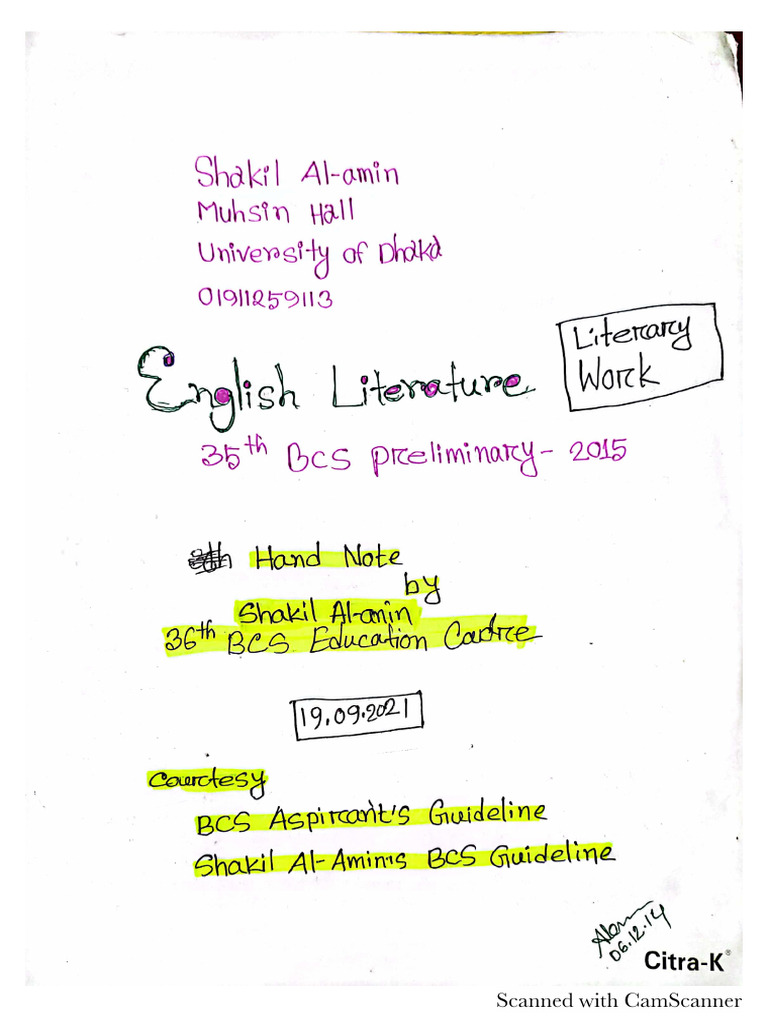 Shakil Al-amin
Muhsin Hall
University of Dhaka
01911259113
Literary
Work
English Literature
35th BCS preliminary- 2015
Hand Note
by
Shakil Al-amin
36th BCS Education Cadre
19.09.2021
Courtesy
BCS Aspirant's Guideline
Shakil Al-Amin's BCS Guideline
06.12.14
Citra-K®
Scanned with CamScanner